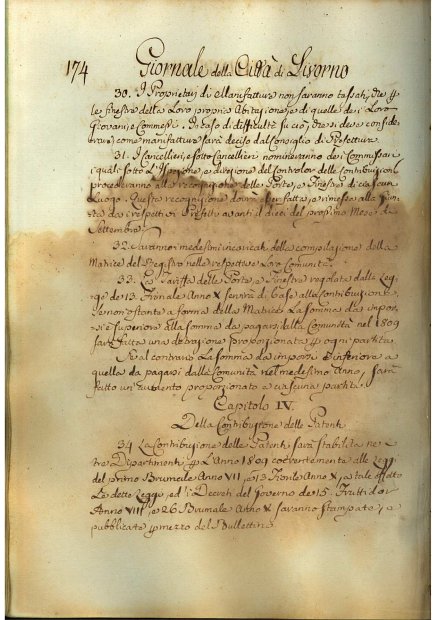 174 Giornale della Città di Livorno
30. I Proprietarj di Manifatture non saranno tassati, che p
le finestre della Loro propria Abitazione, e di quelle de i Loro
Giovani, e Commessi. In caso di difficultà su ciò, che si deve conside
rare come manifattura sarà deciso dal Consiglio di Prefettura
31. I Cancellieri, e sotto Cancellieri nomineranno dei Commissarj
i quali sotto L'Ispezione, e direzione del Controlor delle Contribuzioni
procederanno alla recognizione delle Porte, e Finestre di ciascun
Luogo. Questa recognizione dovrà esser fatta, e rimessa alla
dai respettivi Prefetti avanti il dieci del prossimo Mese di
Settembre
32. Saranno i medesimi incaricati della compilazione della
Matrice del Registro nelle respettive Loro Comunità
33. La Tariffa delle Porte, e Finestre regolata dalla Leg-
ge de 13. Floreale Anno X servirà di base alla Contribuzione,
e non ostante a forma della Matrice La somma da impor-
si è superiore alla somma da pagarsi dalla Comunità nel 1809
sarà fatta una detrazione proporzionata p ogni partita.
Se al contrario La somma da imporsi è inferiore a
quella da pagarsi dalle Comunità nel medesimo Anno, sarà
fatto un aumento proporzionato a ciascuna partita
Capitolo IV.
Della Contribuzione delle Patenti
34 La Contribuzione delle Patenti sarà stabilita nei
tre Dipartimenti p L'Anno 1809 coerentemente alle Leggi
del primo Brumale Anno VII, e 13 Floreale Anno X, e a tale effetto
Le dette Leggi, ed i Decreti del Governo de 15. Fruttidor
Anno VIII, e 26 Brumale Anno X saranno stampate, e
pubblicate p mezzo del Bullettino.